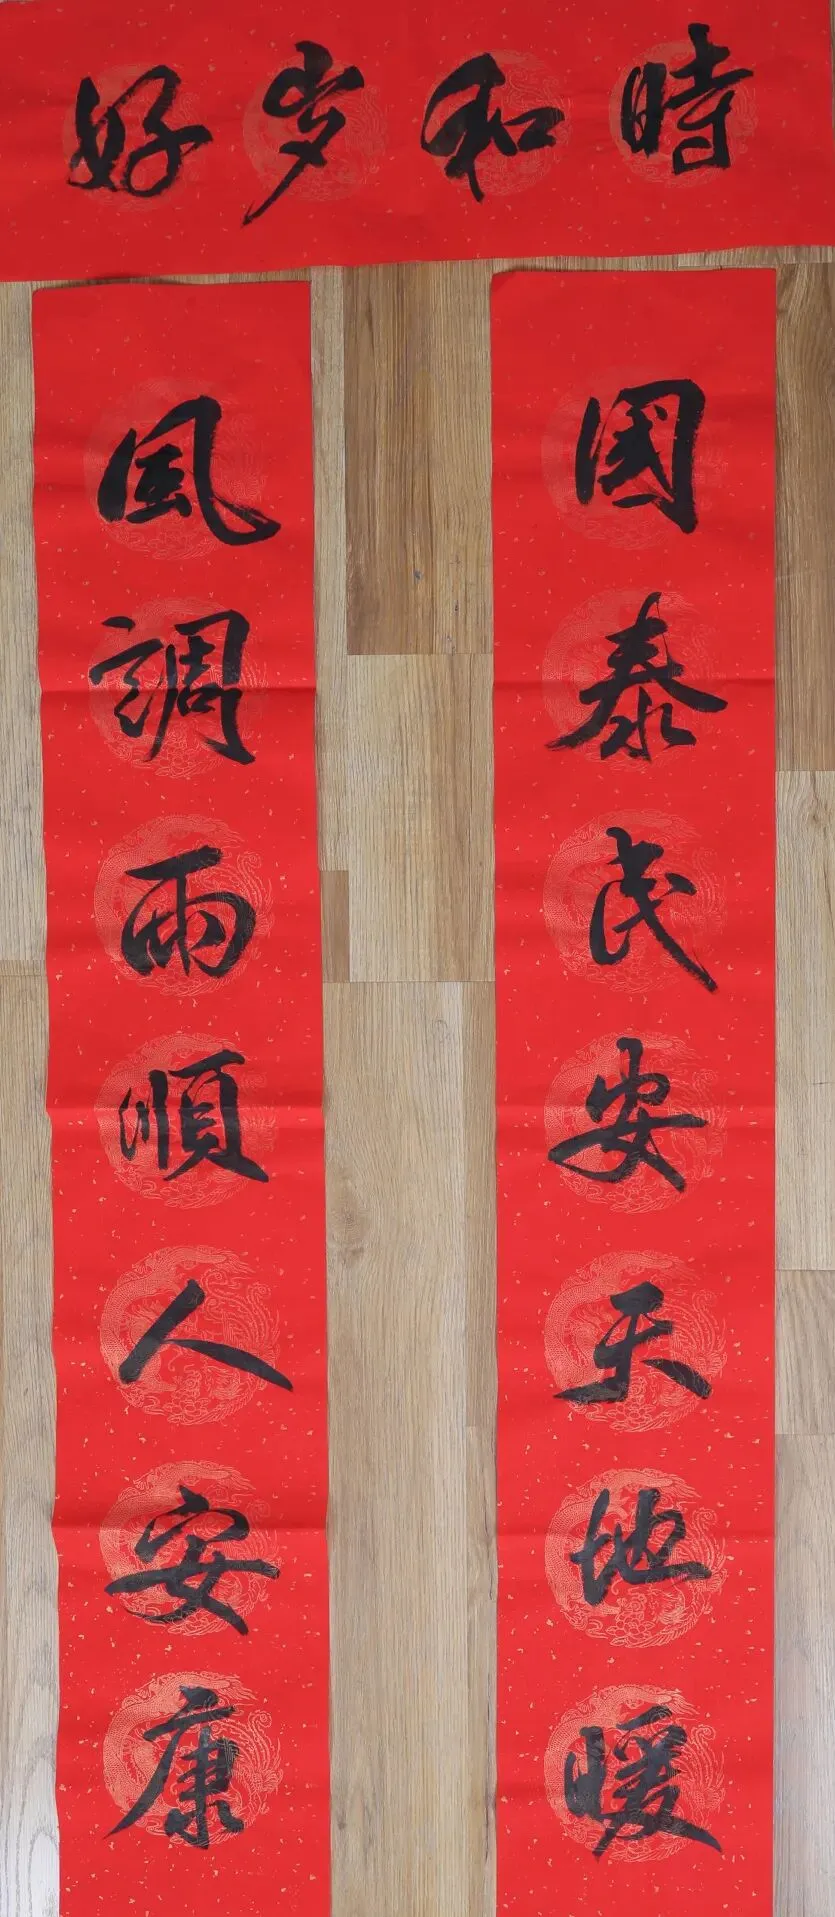 時和岁好
國泰民安天地暖
風調雨順人安康